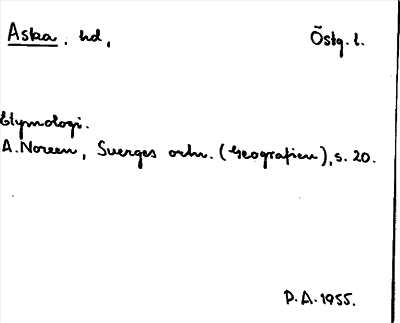 Aska. hd, Östg. l.
Etymologi.
A. Noreen, Sverges ortn. (Geografien), s. 20.
P. A. 1955.